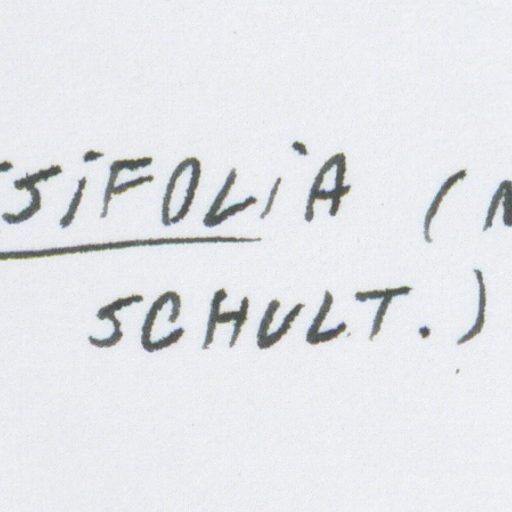 SiFOLiA (
SCHULT.)